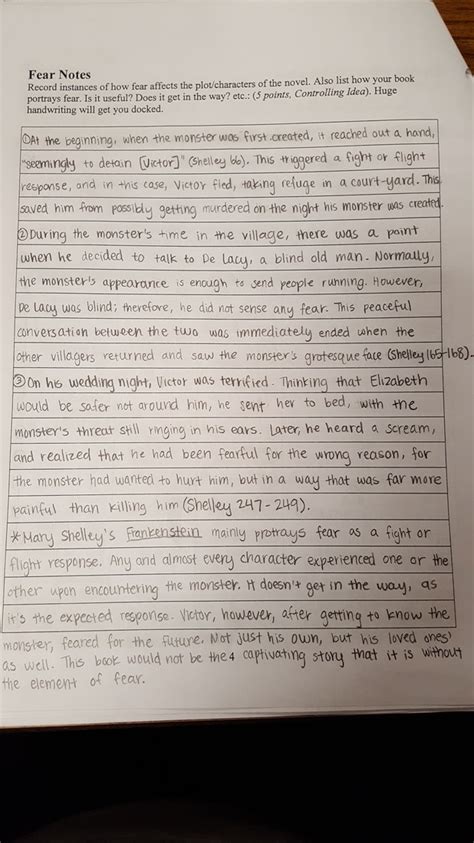 Fear Notes
Record instances of how fear affects the plot/characters of the novel. Also list how your book
portrays fear. Is it useful? Does it get in the way? etc.: (5 points, Controlling Idea). Huge
handwriting will get you docked.
①At the beginning, when the monster was first created, it reached out a hand,
"seemingly to detain [Victor]" (Shelley 66). This triggered a fight or flight
response, and in this case, Victor fled, taking refuge in a court-yard. This
saved him from possibly getting murdered on the night his monster was created.
②During the monster's time in the village, there was a point
when he decided to talk to De Lacy, a blind old man. Normally,
the monster's appearance is enough to send people running. However,
De Lacy was blind; therefore, he did not sense any fear. This peaceful
conversation between the two was immediately ended when the
other villagers returned and saw the monster's grotesque face (Shelley 165-168).
③On his wedding night, Victor was terrified. Thinking that Elizabeth
would be safer not around him, he sent her to bed, with the
monster's threat still ringing in his ears. Later, he heard a scream,
and realized that he had been fearful for the wrong reason, for
the monster had wanted to hurt him, but in a way that was far more
painful than killing him (Shelley 247-249).
*Mary Shelley's Frankenstein mainly protrays fear as a fight or
flight response. Any and almost every character experienced one or the
other upon encountering the monster. It doesn't get in the way, as
it's the expected response. Victor, however, after getting to know the
monster, feared for the future. Not just his own, but his loved ones'
as well. This book would not be the captivating story that it is without
the element of fear.
4